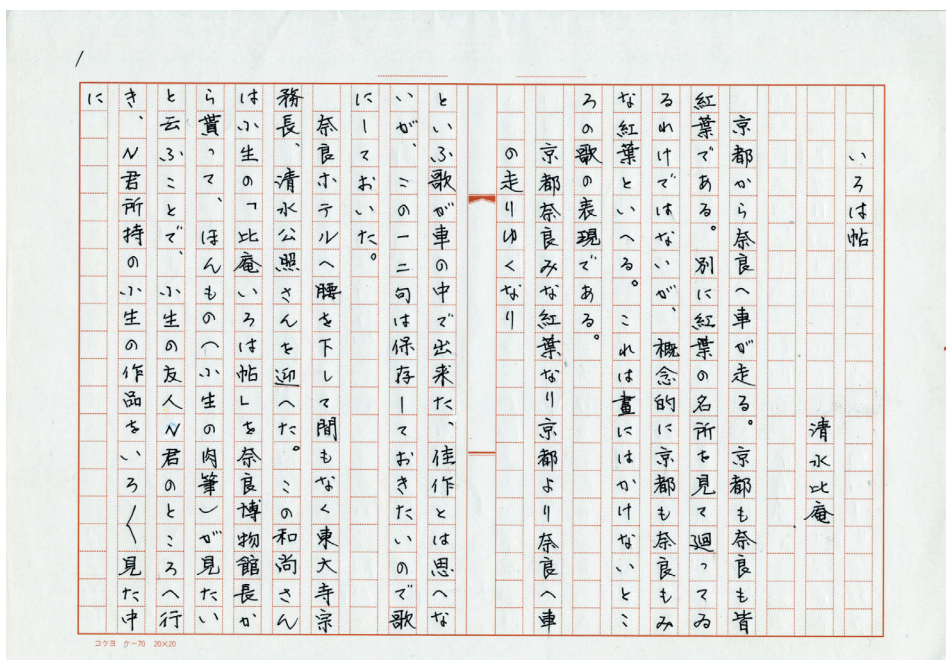 1
いろは帖
清水比庵
京都から奈良へ車が走る。京都も奈良も皆
紅葉である。別に紅葉の名所を見て廻ってゐ
るわけではないが、概念的に京都も奈良もみ
な紅葉といへる。これは畫にはかけないとこ
ろの歌の表現である。
京都奈良みな紅葉なり京都より奈良へ車
の走りゆくなり
といふ歌が車の中で出来た、佳作とは思へな
いが、この一二句は保存しておきたいので歌
にしておいた。
奈良ホテルへ腰を下して間もなく東大寺宗
務長、清水公照さんを迎へた。この和尚さん
は小生の「比庵いろは帖」を奈良博物館長か
ら貰って、ほんもの(小生の肉筆)が見たい
と云ふことで、小生の友人N君のところへ行
き、N君所持の小生の作品をいろ〱見た中
に
コクヨ ケ-70 20×20